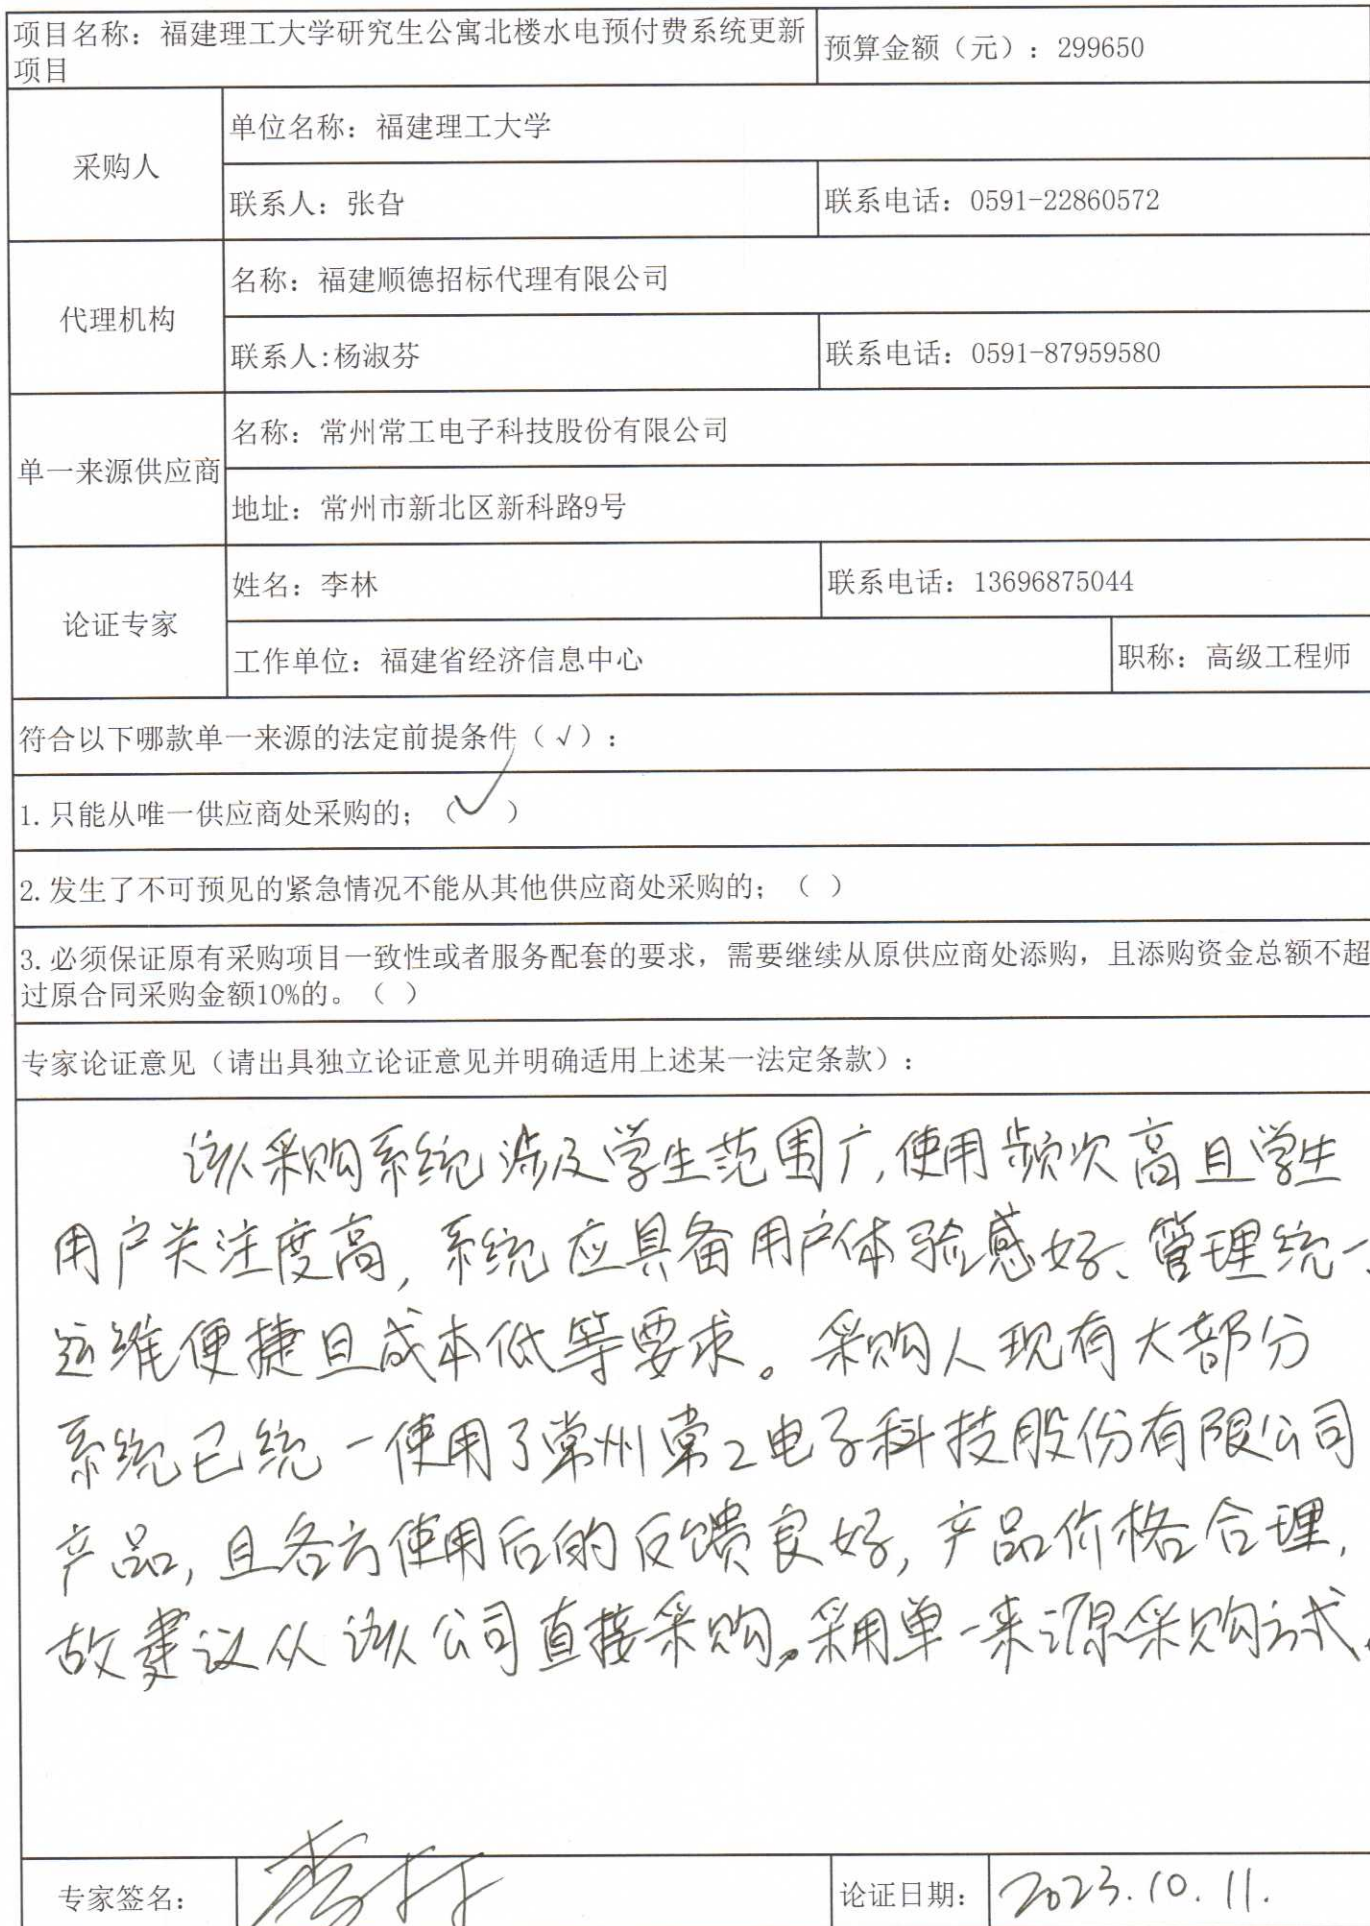 项目名称：福建理工大学研究生公寓北楼水电预付费系统更新
项目
预算金额（元）：299650
采购人
单位名称：福建理工大学
联系人：张旮
联系电话：0591-22860572
代理机构
名称：福建顺德招标代理有限公司
联系人:杨淑芬
联系电话：0591-87959580
单一来源供应商
名称：常州常工电子科技股份有限公司
地址：常州市新北区新科路9号
论证专家
姓名：李林
联系电话：13696875044
工作单位：福建省经济信息中心
职称：高级工程师
符合以下哪款单一来源的法定前提条件（√）：
1.只能从唯一供应商处采购的；（✓）
2.发生了不可预见的紧急情况不能从其他供应商处采购的；（ ）
3.必须保证原有采购项目一致性或者服务配套的要求，需要继续从原供应商处添购，且添购资金总额不超
过原合同采购金额10%的。（ ）
专家论证意见（请出具独立论证意见并明确适用上述某一法定条款）：
该采购系统涉及学生范围广,使用频次高且学生
用户关注度高,系统应具备用户体验感好、管理统一、
运维便捷且成本低等要求。采购人现有大部分
系统已统一使用了常州常工电子科技股份有限公司
产品,且各方使用后的反馈良好,产品价格合理,
故建议从该公司直接采购。采用单一来源采购方式。
专家签名：
李林
论证日期：
2023.10.11.